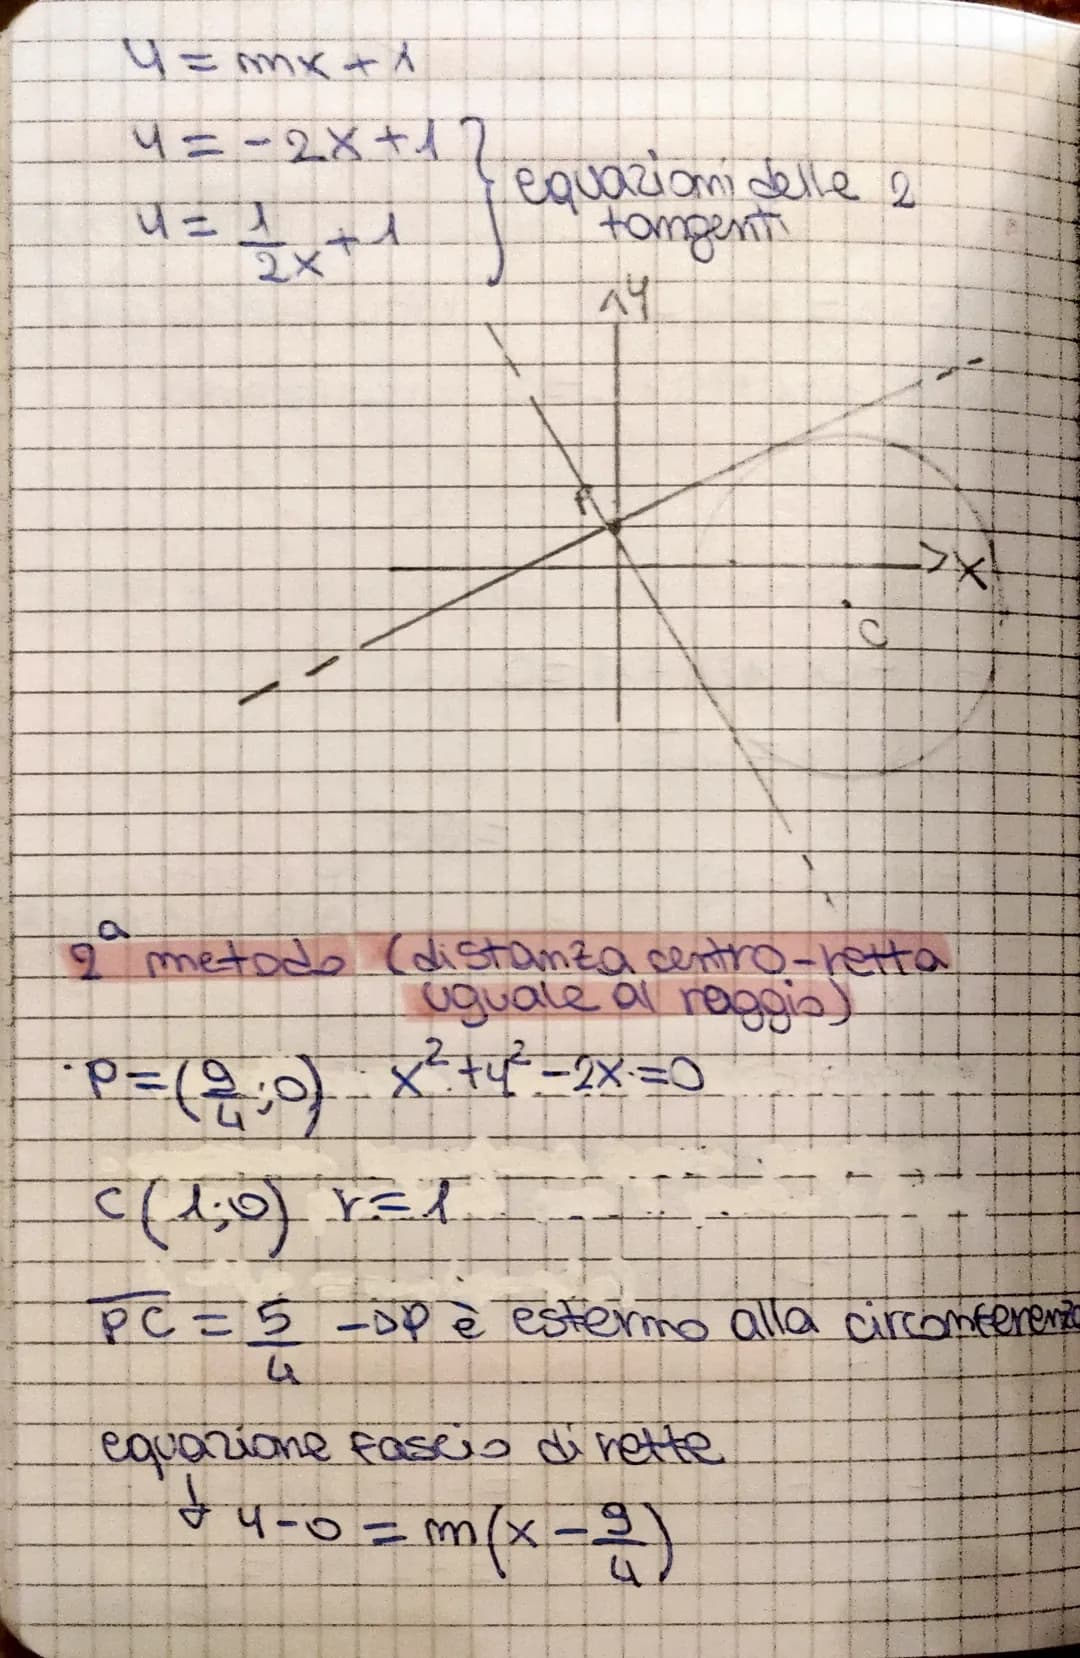 y = mx + 1
y = -2x + 1
y = 1/2x + 1 } equazioni delle 2 tangenti
y
P
x
C
2ª metodo (distanza centro-retta
uguale al raggio)
· P = (9/4; 0) x² + y² - 2x = 0
C (1; 0) r = 1
PC = 5/4 → P è esterno alla circonferenza
equazione fascio di rette
↓ y - 0 = m(x - 9/4)